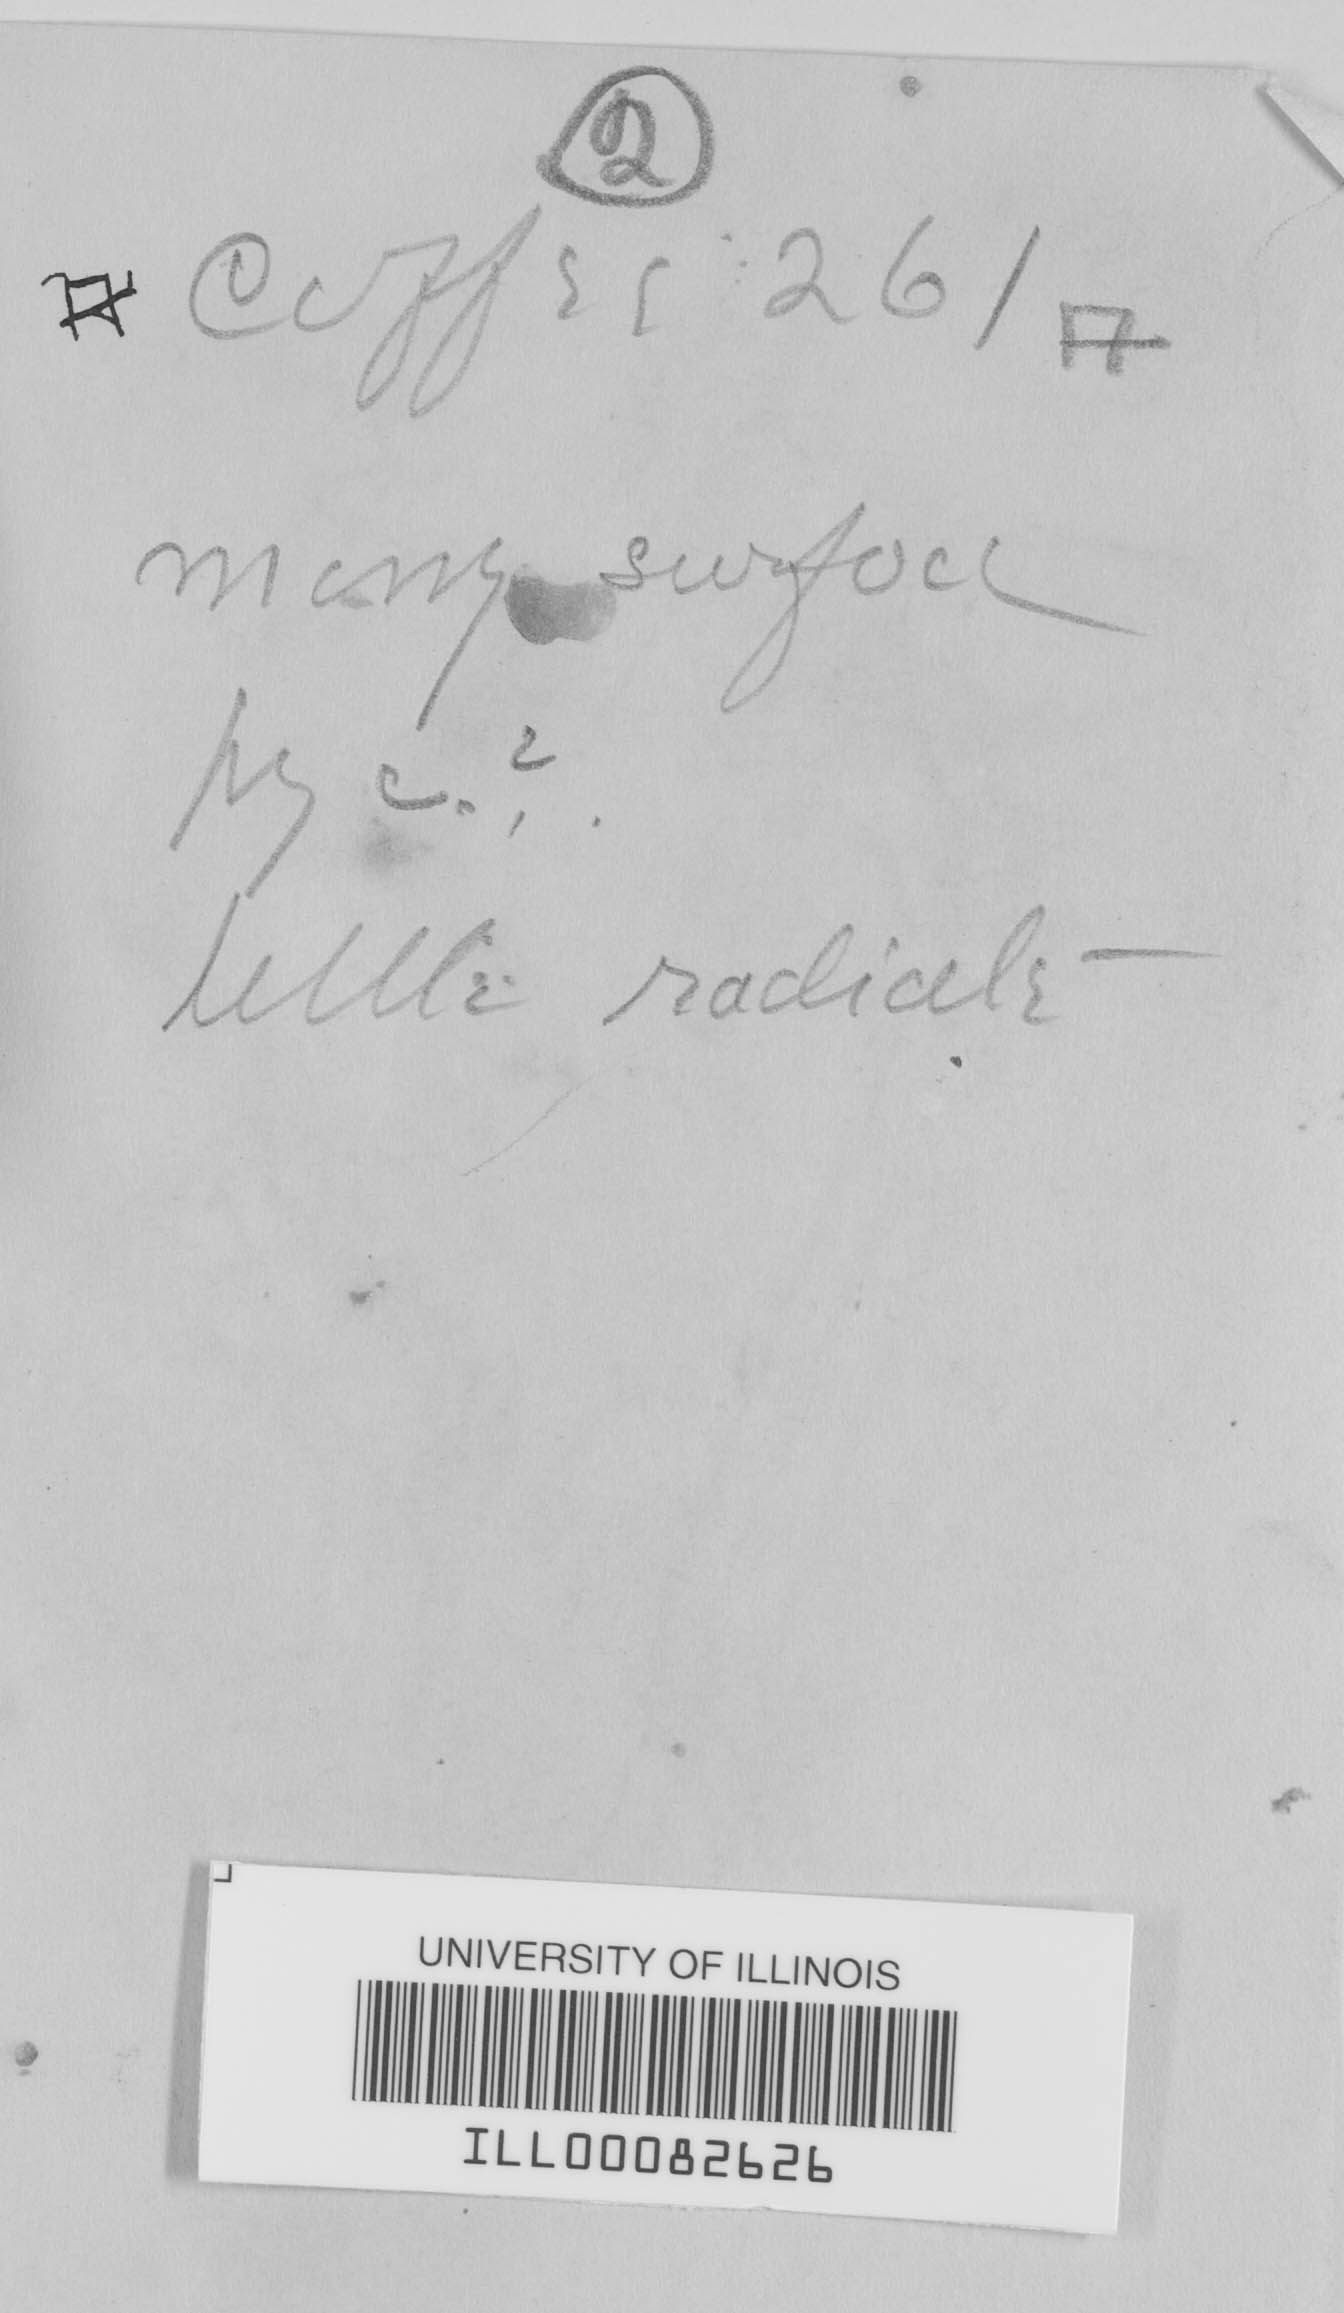 2
Coffee 26/
many surface
pyc.
little radicle
UNIVERSITY OF ILLINOIS
ILL00082626